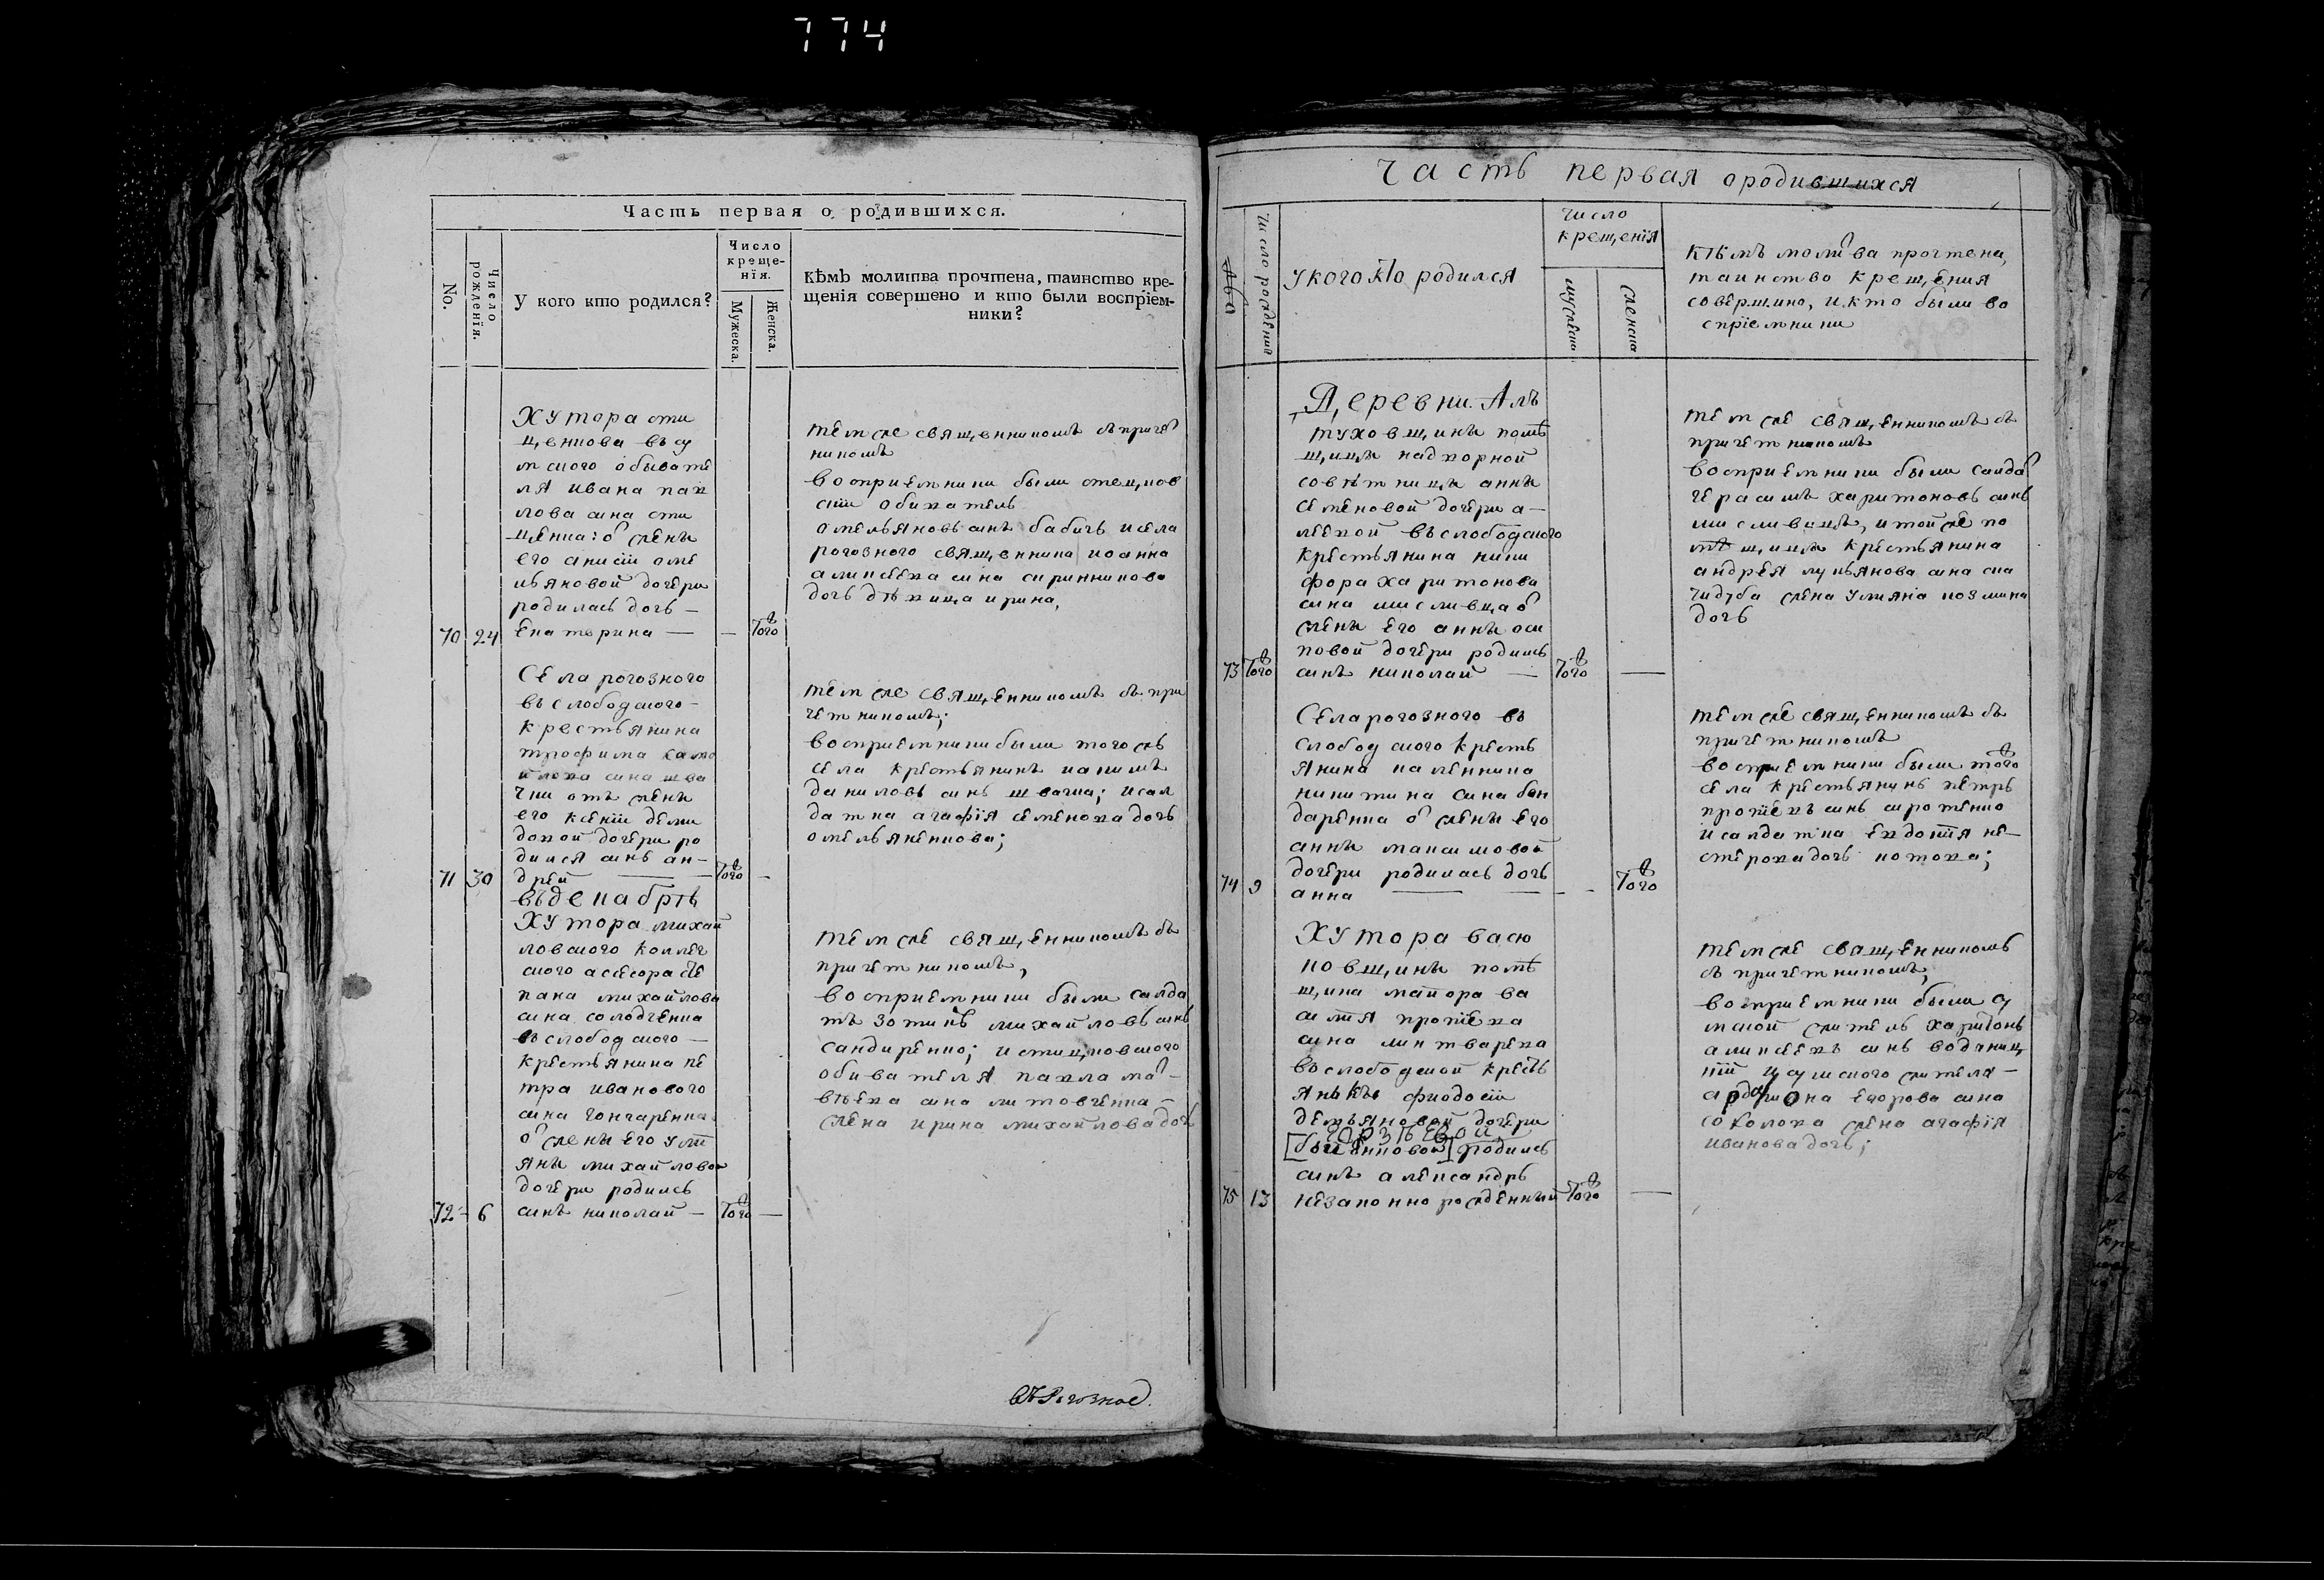 774
Часть первая о родившихся.
No.
Число рожденїя.
У кого кто родился?
Число
креще-
нїя.
Мужеска.
Женска.
Кѣмъ молитва прочтена, таинство кре-
щенїя совершено и кто были воспрїем-
ники?
Хутора сти
ценкова въ су
мского обывате
ля ивана пав
лова сина сти
ценка: от жены
его анисіи оме
льяновой дочери
родилась дочь —
70 24 екатерина — — Того
тем же священникомъ съ причет
никомъ
восприемники были
обиватель
омельяновъ синъ бабичъ и села
рогозного священника иоанна
алиѯеева сина скринникова
дочь дѣвица ирина,
Села рогозного
въ слободского —
крестьянина
трофима само
йлова сина шва
чки отъ жены
его ксеніи деми
довой дочери ро
дился синъ ан-
71 30 дрей — — Того —
тем же священникомъ съ при
четникомъ;
восприемники были того жъ
села крестьянинъ иакимъ
даниловъ синъ швачка; и сал
датка агафія семенова дочь
омельяненкова;
въ декабрѣ
Хутора михай
ловского коллег
ского асесора сте
пана михайлова
сина солодченка
въ слободского —
крестьянина пе
тра иванового
сина гончаренка
от жены его ули
яны михайловой
дочери родилсь
72 — 6 синъ николай — Того —
тем же священникомъ съ
причетникомъ,
восприемники были салда
тъ зотикъ михайловъ синъ
сандиренко; и стицковского
обивателя павла мат-
вѣева сина литовченка —
жена ирина михайлова дочь
въ Рогозное.
Часть первая о родившихся
Число рожденія
У кого кто родился
число
крещенїя
мужеска
женска
кѣмъ молитва прочтена,
таинство крещения
совершино, и кто были во
спрїемники
Деревни. Ал
туховщины помѣ
щицы надворной
совѣтницы анны
семеновой дочери а-
леевой въ слободского
крестьянина ники
фора харитонова
сина мисливца от
жены его анны оси
повой дочери родилсь
73 Того синъ николай — Того —
тем же священникомъ съ
причетникомъ
восприемники были салдат
герасимъ харитоновъ синъ
мисливецъ, и той же по
мѣщицы крестьянина
андрея лукьянова сина ска
чидуба жена улияна козмина
дочь
Села рогозного въ
слободского кресть
янина каленника
никитина сина бон
даренка от жены его
анны максимовой
дочери родилась дочь
74 9 анна — — — Того
тем же священникомъ съ
причетникомъ
восприемники были того
села крестьянинъ петръ
прокоѳіевъ синъ сиротенко
и салдатка евдокія не-
стерова дочь котова;
Хутора васю
ковщины помѣ
щика маиора ва
силія прокоѳіева
сина линтварева
вослободской кресть
янкы фиодосіи
демьяновой дочери
родилсь
синъ александръ
75 13 незаконно рожденный Того —
тем же священникомъ
съ причетникомъ,
восприемники были су
мской житель харитонъ
алиѯеевъ синъ водяниц
кій и сумского жителя —
егорова сина
соколова жена агафія
иванова дочь;